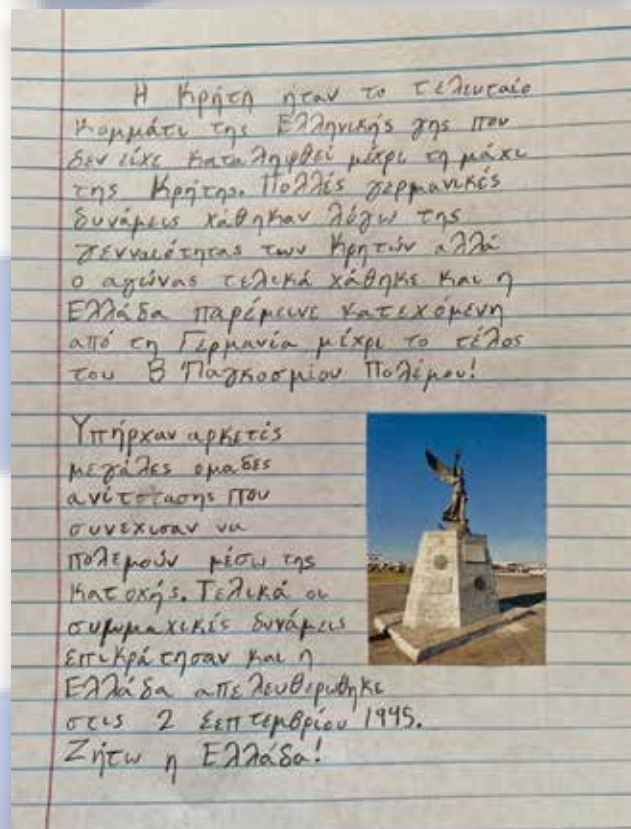 Η Κρήτη ήταν το τελευταίο
κομμάτι της Ελληνικής γης που
δεν είχε καταληφθεί μέχρι τη μάχι
της Κρήτης. Πολλές γερμανικές
δυνάμεις χάθηκαν λόγω της
γενναιότητας των Κρητών αλλά
ο αγώνας τελικά χάθηκε και η
Ελλάδα παρέμεινε κατεχόμενη
από τη Γερμανία μέχρι το τέλος
του Β Παγκοσμίου Πολέμου!
Υπήρχαν αρκετές
μεγάλες ομαδες
ανίτστασης που
συνέχισαν να
πολεμούν μέσω της
κατοχής. Τελικά οι
συμμαχικές δυνάμεις
επικράτησαν και η
Ελλάδα απελευθερωθηκε
στις 2 Σεπτεμβρίου 1945.
Ζήτω η Ελλάδα!